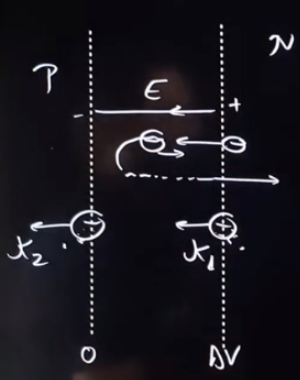 P N
E
- +
- -
+ +
K2 K1
0 ΔV